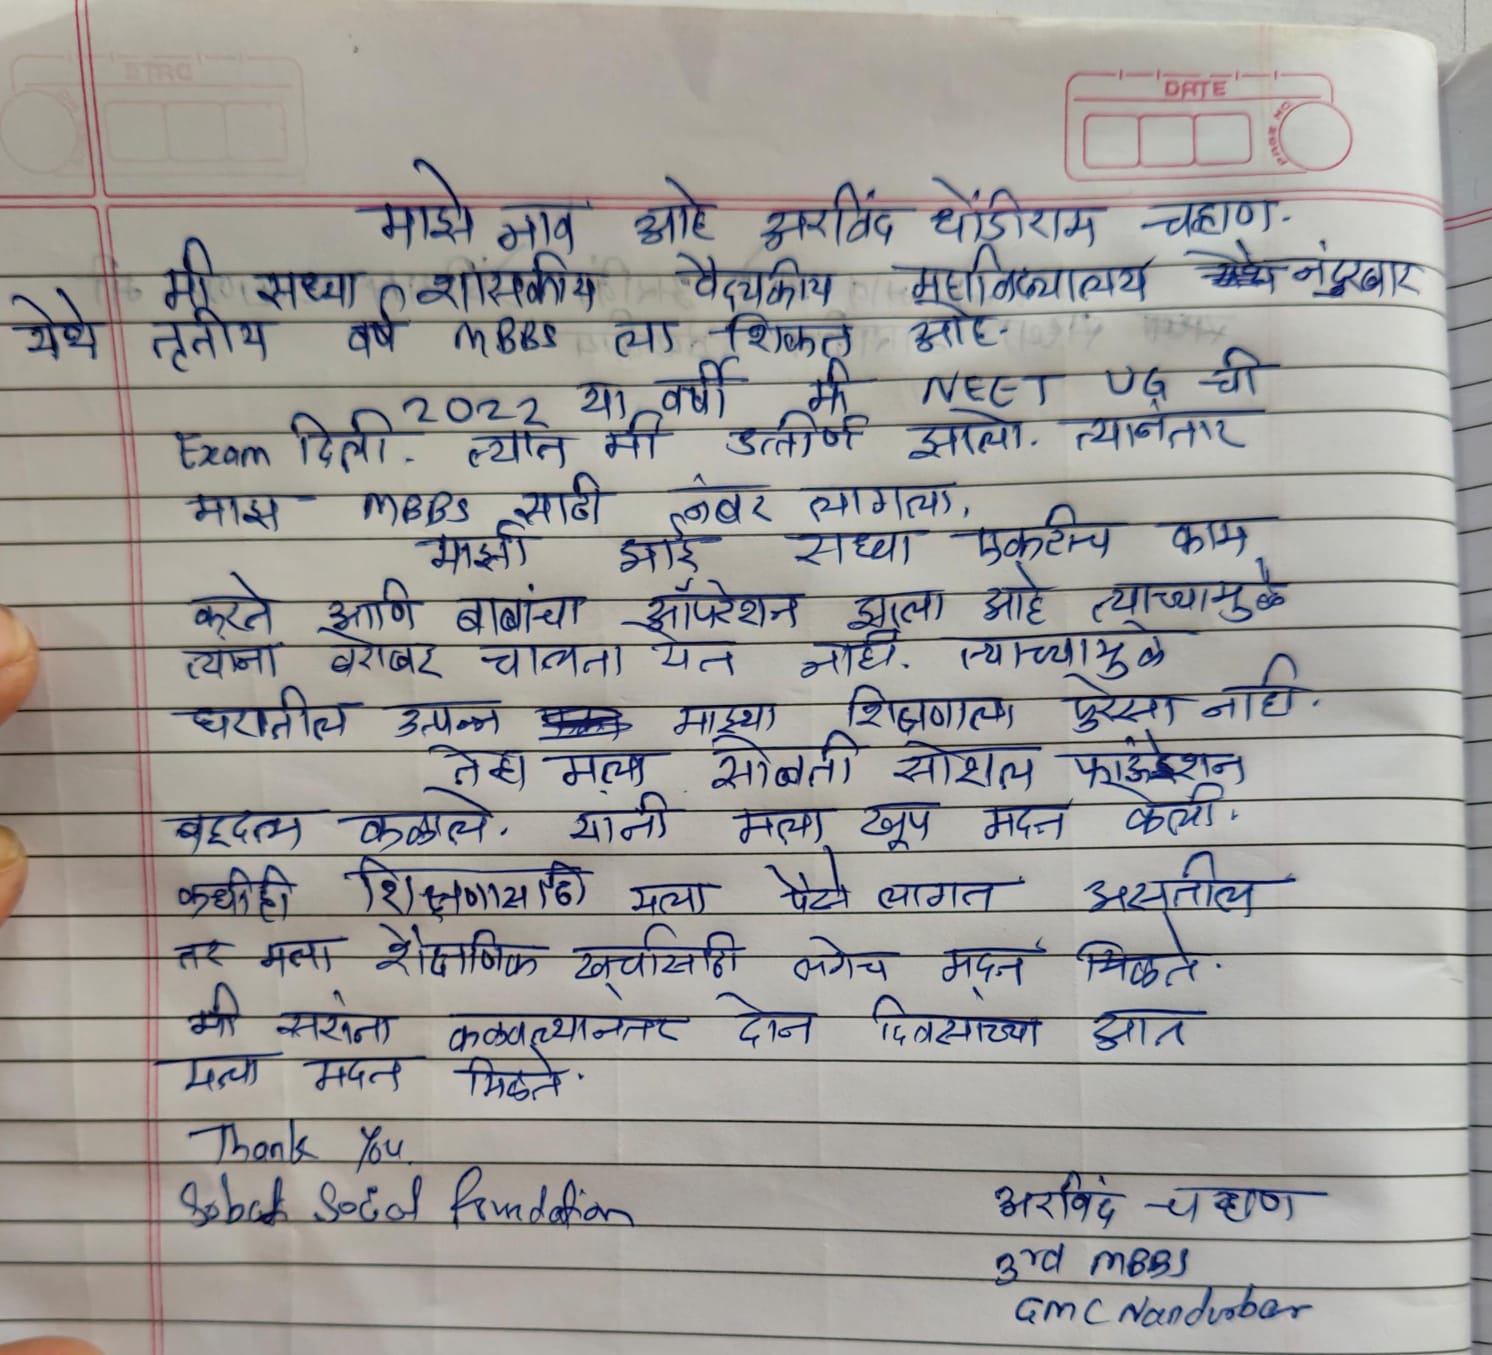 DATE
माझे नाव आहे अरविंद धोंडीराम चव्हाण.
मी सध्या शासकीय वैद्यकीय महाविद्यालय नंदुरबार
येथे तृतीय वर्ष MBBS ला शिकत आहे.
2022 या वर्षी मी NEET UG ची
Exam दिली. त्यात मी उत्तीर्ण झालो. त्यानंतर
माझ MBBS साठी नंबर लागला.
माझी आई सध्या एकटीच काम
करते आणि बाबांचा ऑपरेशन झाला आहे त्याच्यामुळे
त्यांना बरोबर चालता येत नाही. त्याच्यामुळे
घरातील उत्पन्न माझ्या शिक्षणाला पुरेसा नाही.
तेव्हा मला सोबती सोशल फाऊंडेशन
बद्दल कळाले. यांनी मला खूप मदत केली.
कधीही शिक्षणासाठी मला पैसे लागत असतील
तर मला शैक्षणिक खर्चासाठी लगेच मदत मिळते.
मी सरांना कळवल्यानंतर दोन दिवसाच्या आत
मला मदत मिळते.
Thank You.
Sobati Social foundation
अरविंद चव्हाण
3rd MBBS
GMC Nandurbar